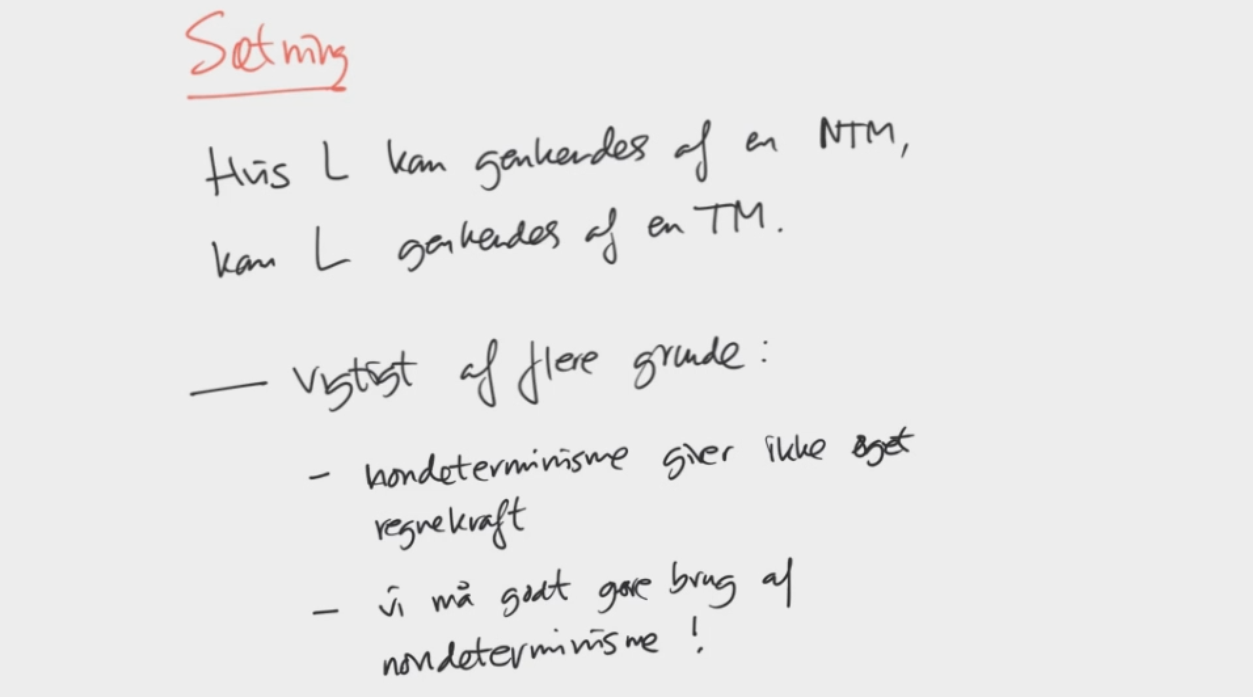 Sætning
Hvis L kan genkendes af en NTM,
kan L genkendes af en TM.
— Vigtigt af flere grunde:
- nondeterminisme giver ikke øget
regnekraft
- vi må godt gøre brug af
nondeterminisme!